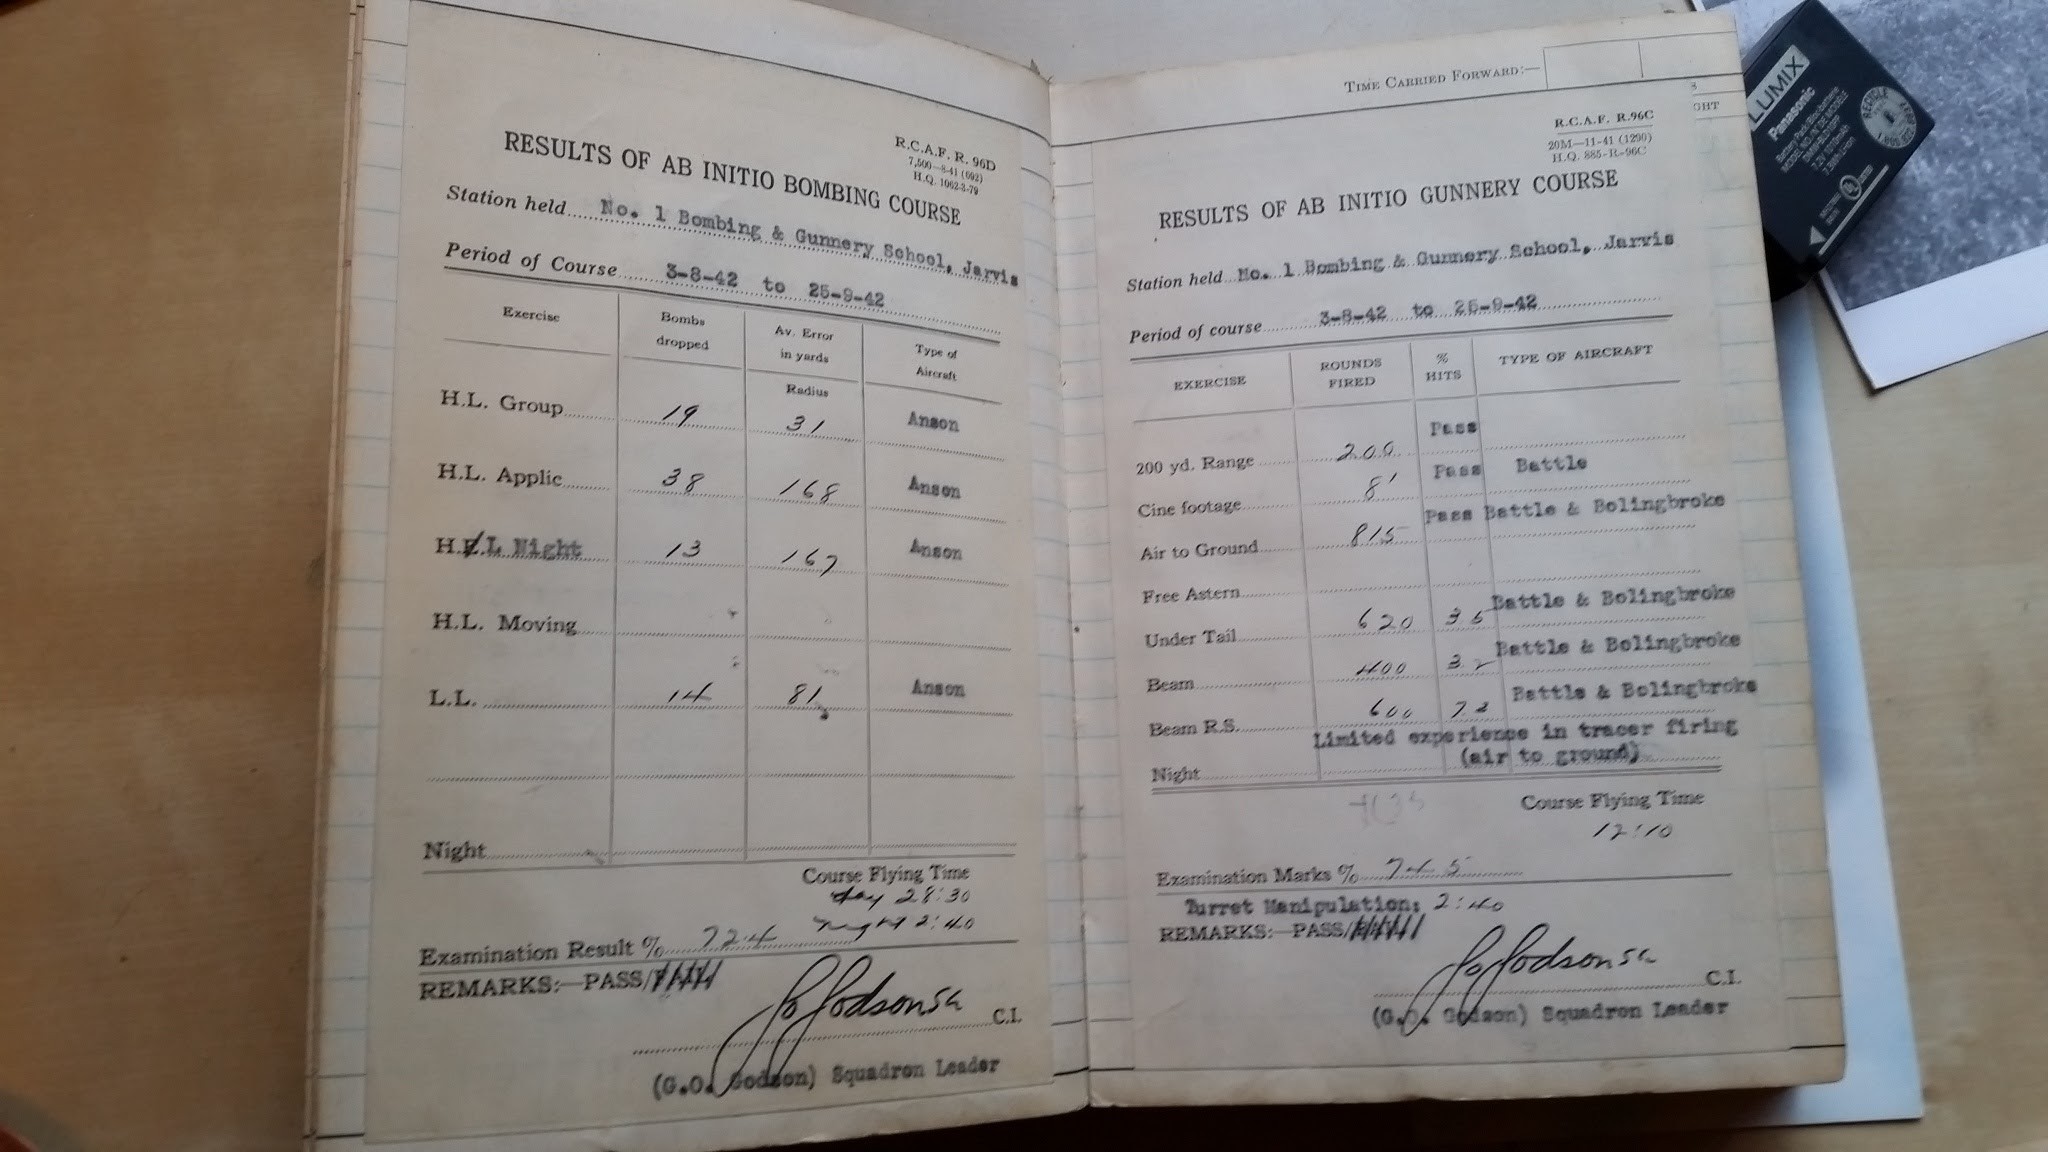 R.C.A.F. R. 96D
7,500—8-41 (692)
H.Q. 1062-3-79
RESULTS OF AB INITIO BOMBING COURSE
Station held No. 1 Bombing & Gunnery School, Jarvis
Period of Course 3-8-42 to 25-9-42
Exercise Bombs dropped Av. Error in yards Radius Type of Aircraft
H.L. Group 19 31 Anson
H.L. Applic 38 168 Anson
H.L Night 13 167 Anson
H.L. Moving
L.L. 14 81 Anson
Night
Course Flying Time
day 28:30
night 2:40
Examination Result % 72.4
REMARKS:—PASS/
C.I.
(G.O. Godson) Squadron Leader
TIME CARRIED FORWARD:—
R.C.A.F. R.96C
20M—11-41 (1290)
H.Q. 885-R-96C
RESULTS OF AB INITIO GUNNERY COURSE
Station held No. 1 Bombing & Gunnery School, Jarvis
Period of course 3-8-42 to 25-9-42
EXERCISE ROUNDS FIRED % HITS TYPE OF AIRCRAFT
200 yd. Range 200 Pass
Cine footage 8' Pass Battle
Air to Ground 815 Pass Battle & Bolingbroke
Free Astern
Under Tail 620 3.5 Battle & Bolingbroke
Beam 400 3.2 Battle & Bolingbroke
Beam R.S. 600 7.3 Battle & Bolingbroke
Night Limited experience in tracer firing
(air to ground)
Course Flying Time
12:10
Examination Marks % 74.5
Turret Manipulation: 2:40
REMARKS:—PASS/
C.I.
(G.O. Godson) Squadron Leader
LUMIX
Panasonic